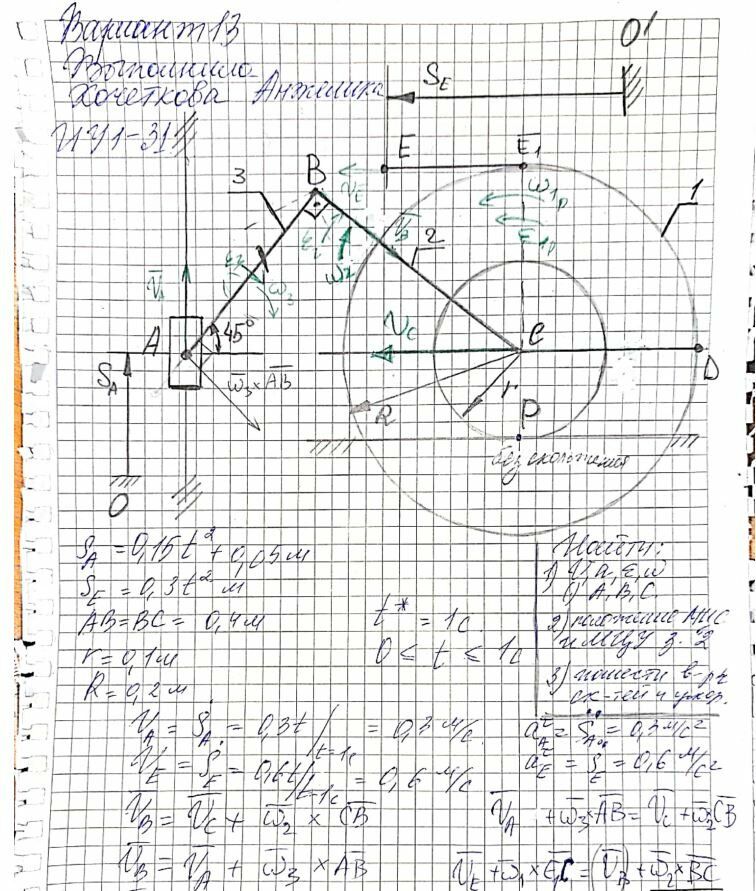 Вариант 13
Выполнила
Хочеткова Анжелика
ИУ1-31
O'
S_E
E
E₁
ω₁ₚ
ε₁ₚ
1
3
B
2
ω₂
ω₃
45°
A
V_C
C
D
S_A
ω̄₃×A̅B̅
R
r
P
без скольжения
O
S_A = 0,15t² + 0,05 м
S_E = 0,3t² м
AB = BC = 0,4 м
r = 0,1 м
R = 0,2 м
t* = 1c.
0 ≤ t ≤ 1c
Найти:
1) V, a, ε, ω
A, B, C.
2) положение МЦС
и МЦУ з. 2
3)
V_A = Ṡ_A = 0,3t /t=1c = 0,3 м/с
V_E = Ṡ_E = 0,6t /t=1c = 0,6 м/с
a_A^τ = S̈_A = 0,3 м/с²
a_E^τ = S̈_E = 0,6 м/с²
V̅_B = V̅_C + ω̅₂ × C̅B̅
V̅_A + ω̅₃×A̅B̅ = V̅_C + ω̅₂×C̅B̅
V̅_B = V̅_A + ω̅₃ × A̅B̅
V̅_E + ω̅₁ × E̅C̅ = (V̅_B) + ω̅₂×B̅C̅